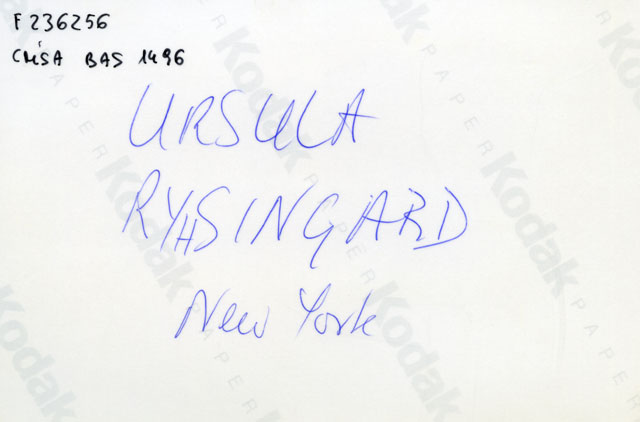 F 236256
CMSA BAS 1496
URSULA
RYHSINGARD
New York
Kodak PAPER
Kodak PAPER
Kodak PAPER
Kodak PAPER
Kodak PAPER
Kodak